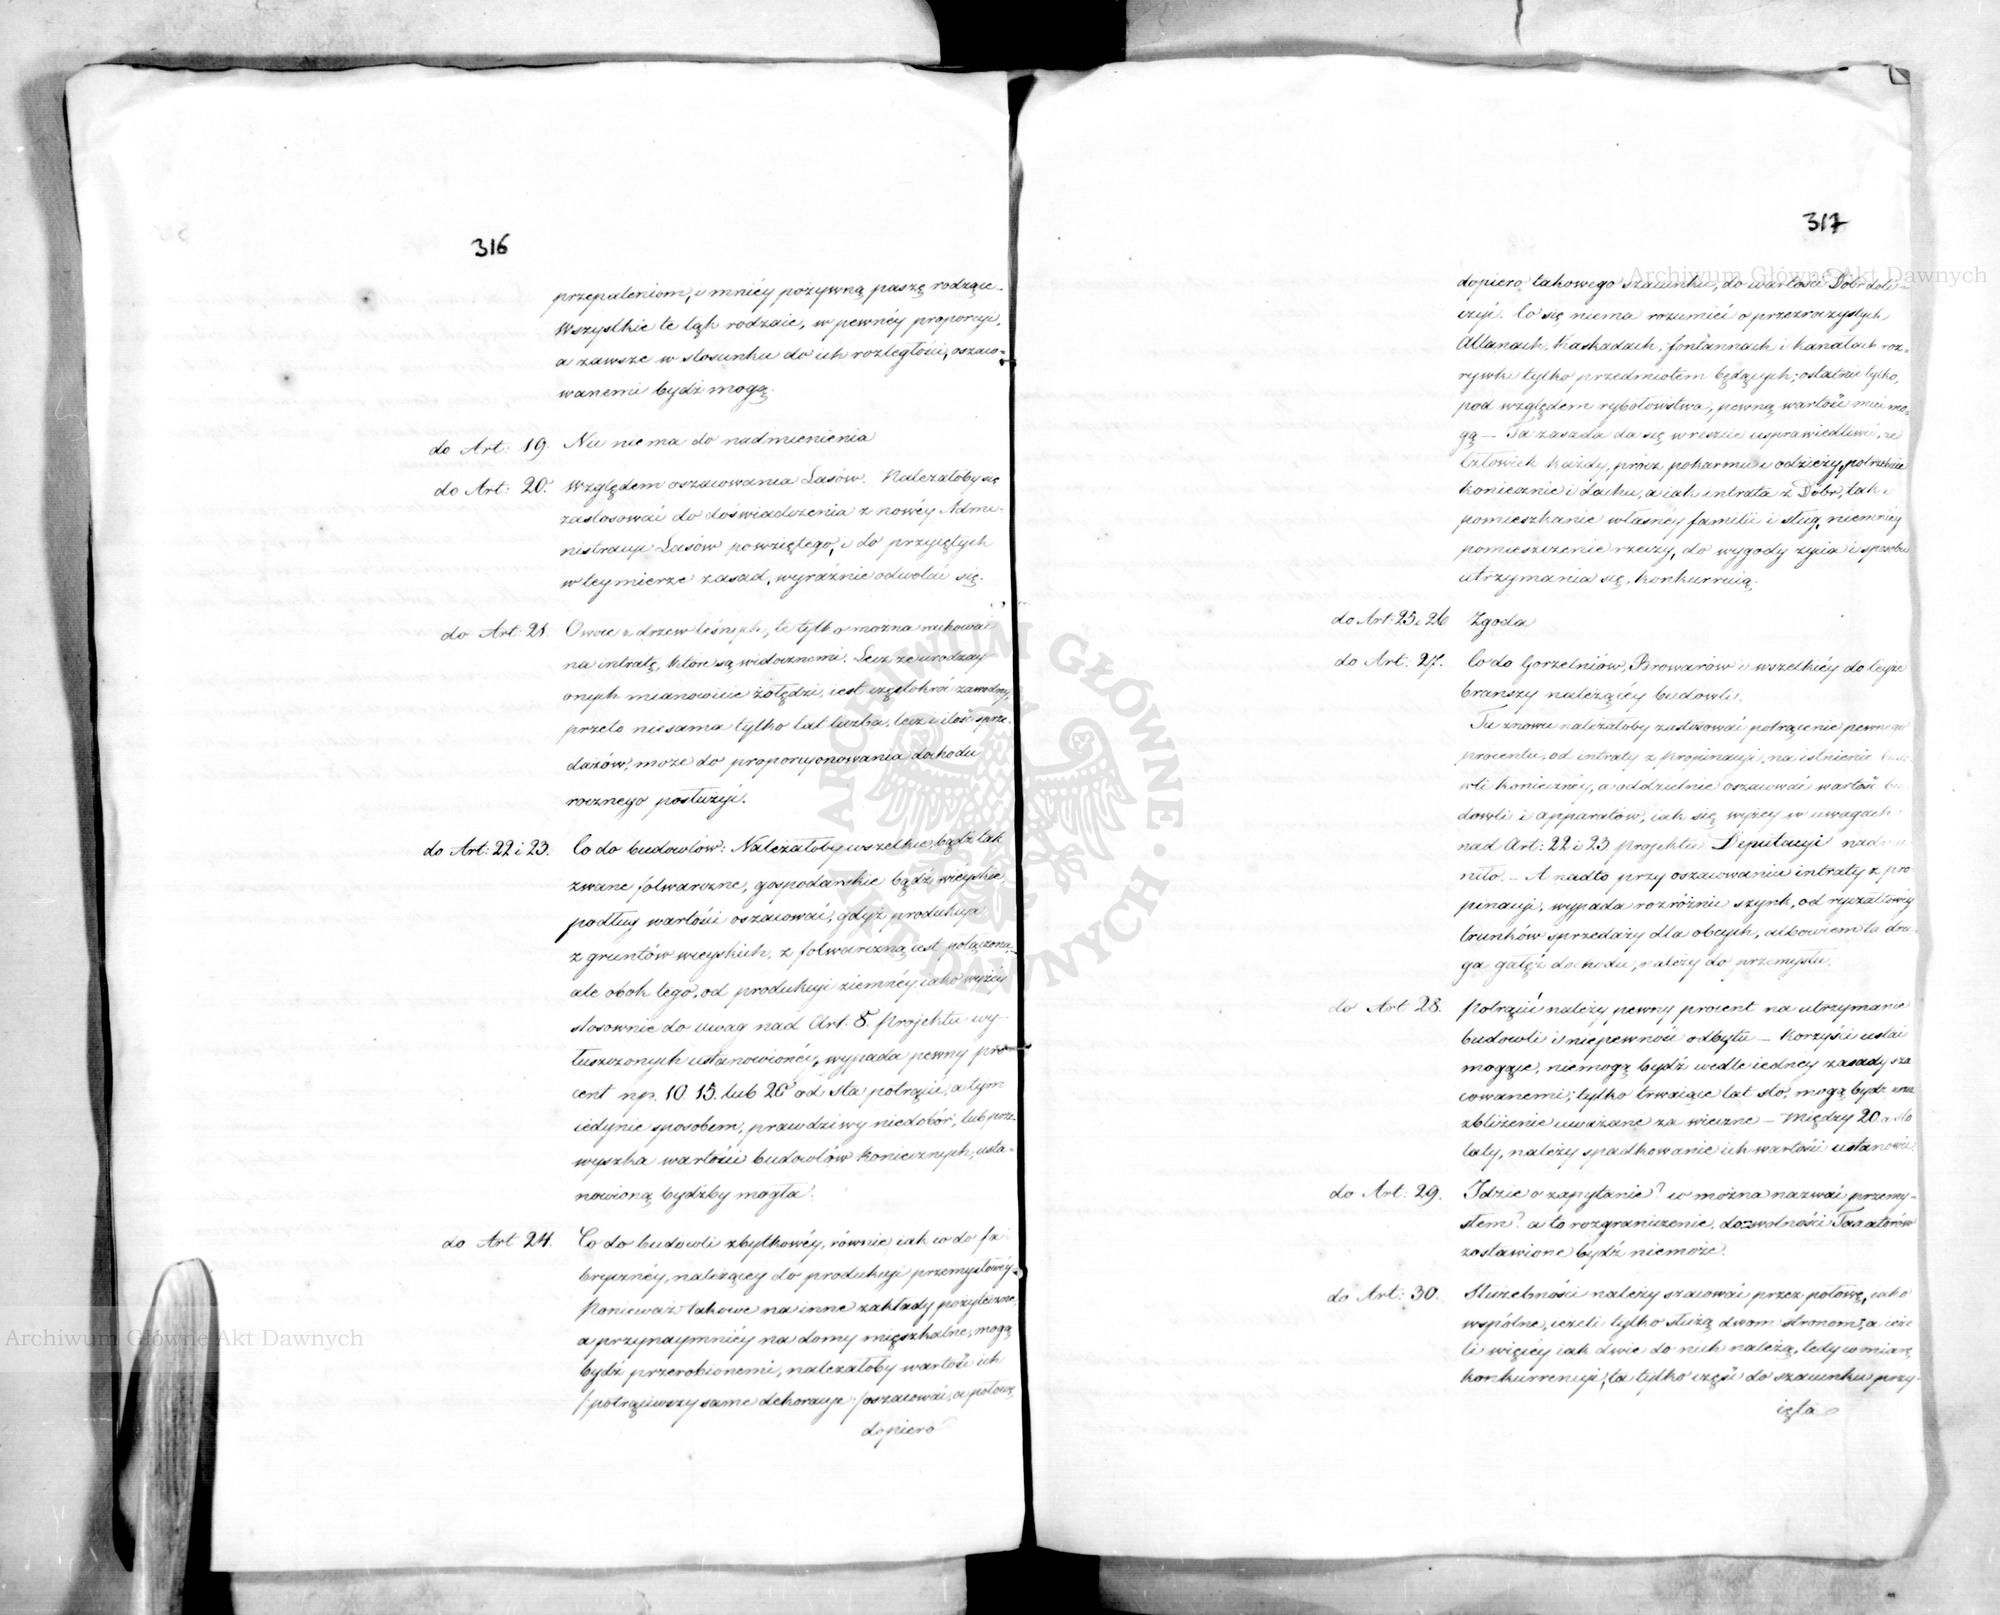 316
przepaleniom, i mniéy pożywną paszę rodzące.
Wszystkie te łąk rodzaie, w pewnéy proporcyi,
a zawsze w stosunku do ich rozległości, oszaco=
wanemi bydź mogą.
do Art: 19. Nic niema do nadmienienia
do Art: 20. Względem oszacowania Lasów. Należałoby się
zastosować do doświadczenia z nowéy Admi-
nistracyi Lasów powziętego, i do przyjętych
w teymierze zasad, wyraźnie odwołać się.
do Art: 21. Owoce z drzew leśnych, te tylko można rachować
na intratę, które są widocznemi. Lecz że urodzay
onych mianowicie żołędzi, iest częstokroć zawodny,
przeto nie sama tylko lat liczba, lecz i ilość sprze-
dażów, może do proporcyonowania dochodu
rocznego posłużyć.
do Art: 22 i 23. Co do budowlów: Należałoby wszelkie, bądź tak
zwane folwarczne, gospodarskie bądź wieyskie,
podług wartości oszacować, gdyż produkcya
z gruntów wieyskich, z folwarczną iest połączona,
ale obok tego, od produkcyi ziemnéy, iako wyżéy
stosownie do uwag nad Art: 8. Projektu wy-
łuszczonych ustanowionéy, wypada pewny pro
cent np. 10. 15. lub 20 od sta potrącić, a tym
iedynie sposobem, prawdziwy niedobór, lub prze-
wyszka wartości budowlów koniecznych, usta-
nowioną bydźby mogła.
do Art 24. Co do budowli zbytkowéy, równie iak co do fa-
brycznéy, należącey do produkcyi przemysłowéy
Ponieważ takowe na inne zakłady pożyteczne,
a przynaymniéy na domy mięszkalne, mogą
bydź przerobionemi, należałoby wartość ich
/potrąciwszy same dekoracye/ oszacować, a połowę
dopiero
317
dopiero takowego szacunku, do wartości Dóbr doli-
czyć. Co się niema rozumieć o przezroczystych
Altanach, Kaskadach, fontannach i kanałach roz=
rywki tylko przedmiotem będących; ostatnie tylko,
pod względem rybołowstwa, pewną wartość mieć mo-
gą — Ta zasada da się wreszcie usprawiedliwić, że
Człowiek każdy, prócz pokarmu i odzieży, potrzebuie
koniecznie i dachu, a iak intrata z Dóbr, tak i
pomieszkanie własnéy familii i sług, niemniéy
pomieszczenie rzeczy, do wygody życia i sposobu
utrzymania się, konkurruią.
do Art: 25 i 26 Zgoda
do Art: 27. Co do Gorzelniów, Browarów i wszelkiéy do teyże
branszy należącéy budowli.
Tu znowu należałoby zastosować potrącenie pewnego
procentu, od intraty z propinacyi, na istnienie budo
wli koniecznéy, a oddzielnie oszacować wartość bu-
dowli i apparatów, iak się wyżey w uwagach
nad Art: 22 i 23 projektu Deputacyi nadmie
niło. — A nadto przy oszacowaniu intraty z pro
pinacyi, wypada rozróżnić szynk, od ryczałtowéy
trunków sprzedaży dla obcych, albowiem ta dru-
ga gałęź dochodu, należy do przemysłu.
do Art 28. Potrącić należy pewny procent na utrzymanie
budowli i niepewność odbytu — Korzyści ustać
mogące, niemogą bydź wedle iedney zasady sza
cowanemi; tylko trwaiące lat sto, mogą bydź przez
zbliżenie uważane za wieczne — Między 20 a sto
laty, należy spadkowanie ich wartości ustanowić.
do Art: 29. Idzie o zapytanie? co można nazwać przemy-
słem? a to rozgraniczenie, do=wolności Taxatorów
zostawione bydź niemoże.
do Art: 30. Służebności należy szacować przez połowę, iako
wspólne, ieżeli tylko służą dwom stronom, a ieże
li więcéy iak dwie do nich należą, tedy w miarę
konkurrencyi, ta tylko część do szacunku przy-
ięta
Archiwum Główne Akt Dawnych
Archiwum Główne Akt Dawnych
ARCHIWUM GŁÓWNE AKT DAWNYCH